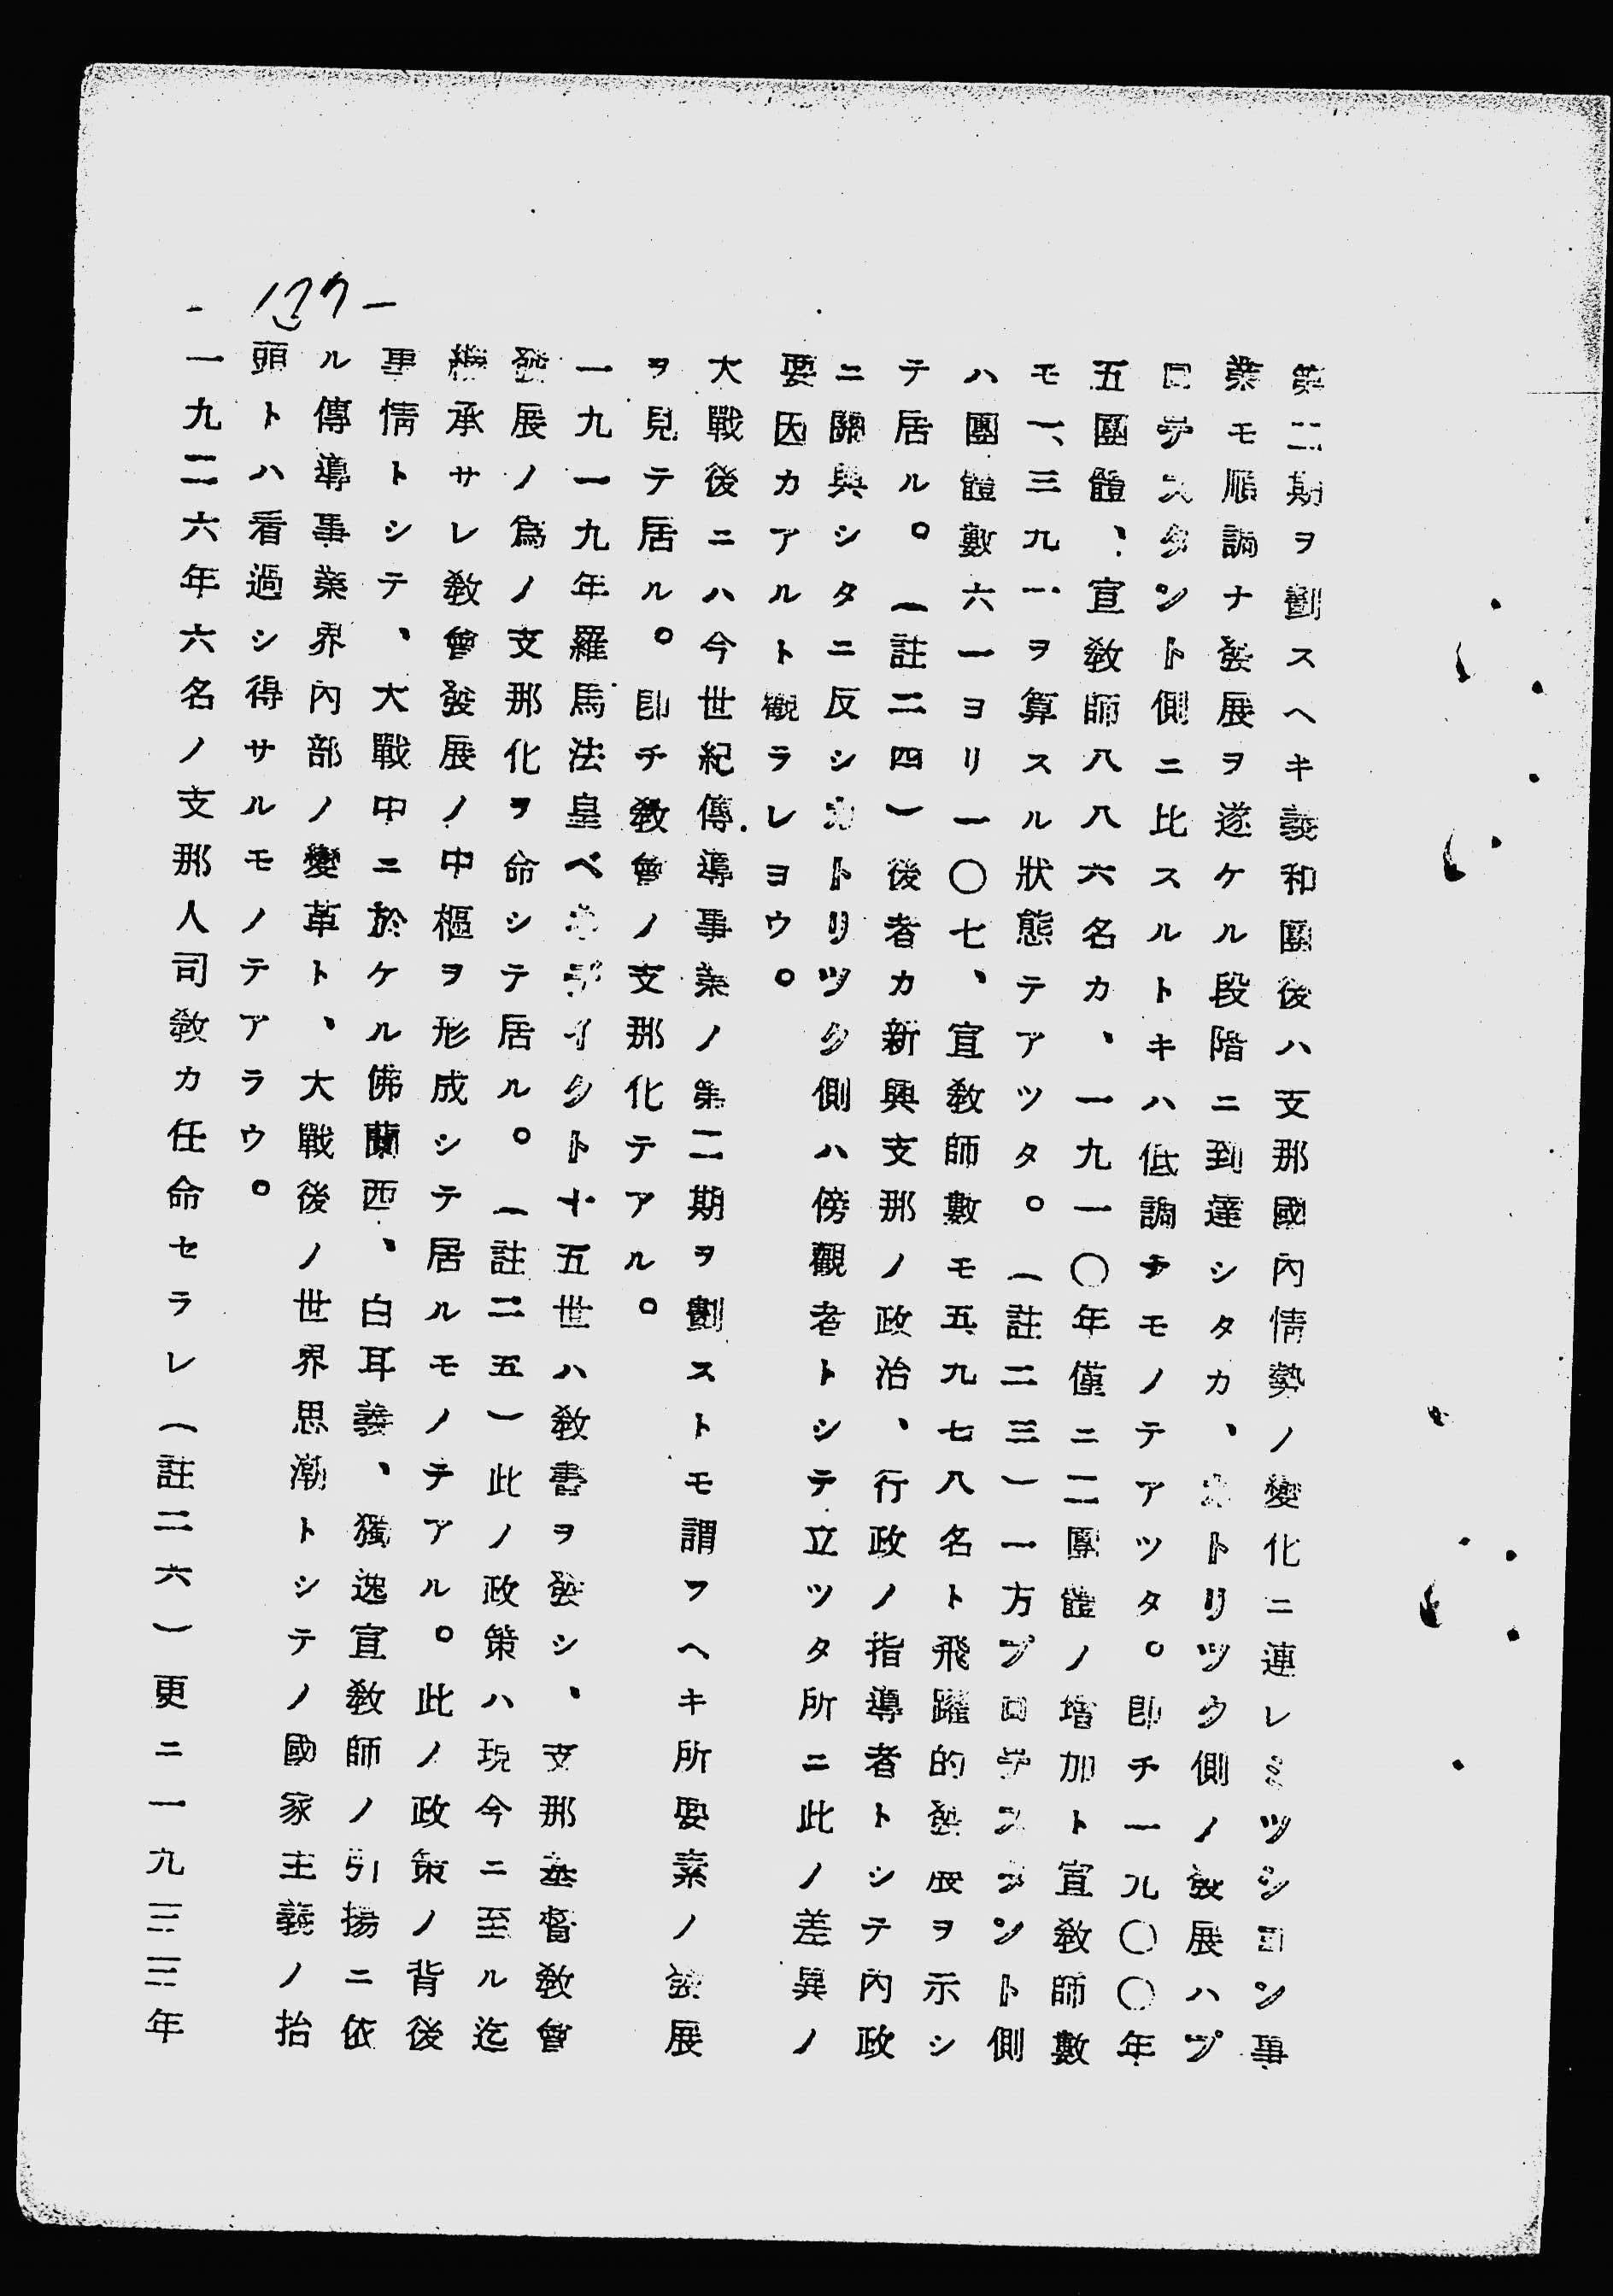 第二期ヲ劃スヘキ義和團後ハ支那國內情勢ノ變化ニ連レミツシヨン事
業モ順調ナ發展ヲ遂ケル段階ニ到達シタカ、カトリツク側ノ發展ハプ
ロテスタント側ニ比スルトキハ低調ナモノテアツタ。卽チ一九〇〇年
五團體、宣敎師八八六名カ、一九一〇年僅ニ二團體ノ增加ト宣敎師數
モ一、三九一ヲ算スル狀態テアツタ。（註二三）一方プロテスタント側
ハ團體數六一ヨリ一〇七、宣敎師數モ五九七八名ト飛躍的發展ヲ示シ
テ居ル。（註二四）後者カ新興支那ノ政治、行政ノ指導者トシテ內政
ニ關與シタニ反シカトリツク側ハ傍觀者トシテ立ツタ所ニ此ノ差異ノ
要因カアルト觀ラレヨウ。
大戰後ニハ今世紀傳導事業ノ第二期ヲ劃ストモ謂フヘキ所要素ノ發展
ヲ見テ居ル。卽チ敎會ノ支那化テアル。
一九一九年羅馬法皇ベネデイクト十五世ハ敎書ヲ發シ、支那基督敎會
發展ノ爲ノ支那化ヲ命シテ居ル。（註二五）此ノ政策ハ現今ニ至ル迄
繼承サレ敎會發展ノ中樞ヲ形成シテ居ルモノテアル。此ノ政策ノ背後
事情トシテ、大戰中ニ於ケル佛蘭西、白耳義、獨逸宣敎師ノ引揚ニ依
ル傳導事業界內部ノ變革ト、大戰後ノ世界思潮トシテノ國家主義ノ抬
頭トハ看過シ得サルモノテアラウ。
一九二六年六名ノ支那人司敎カ任命セラレ（註二六）更ニ一九三三年
－137－